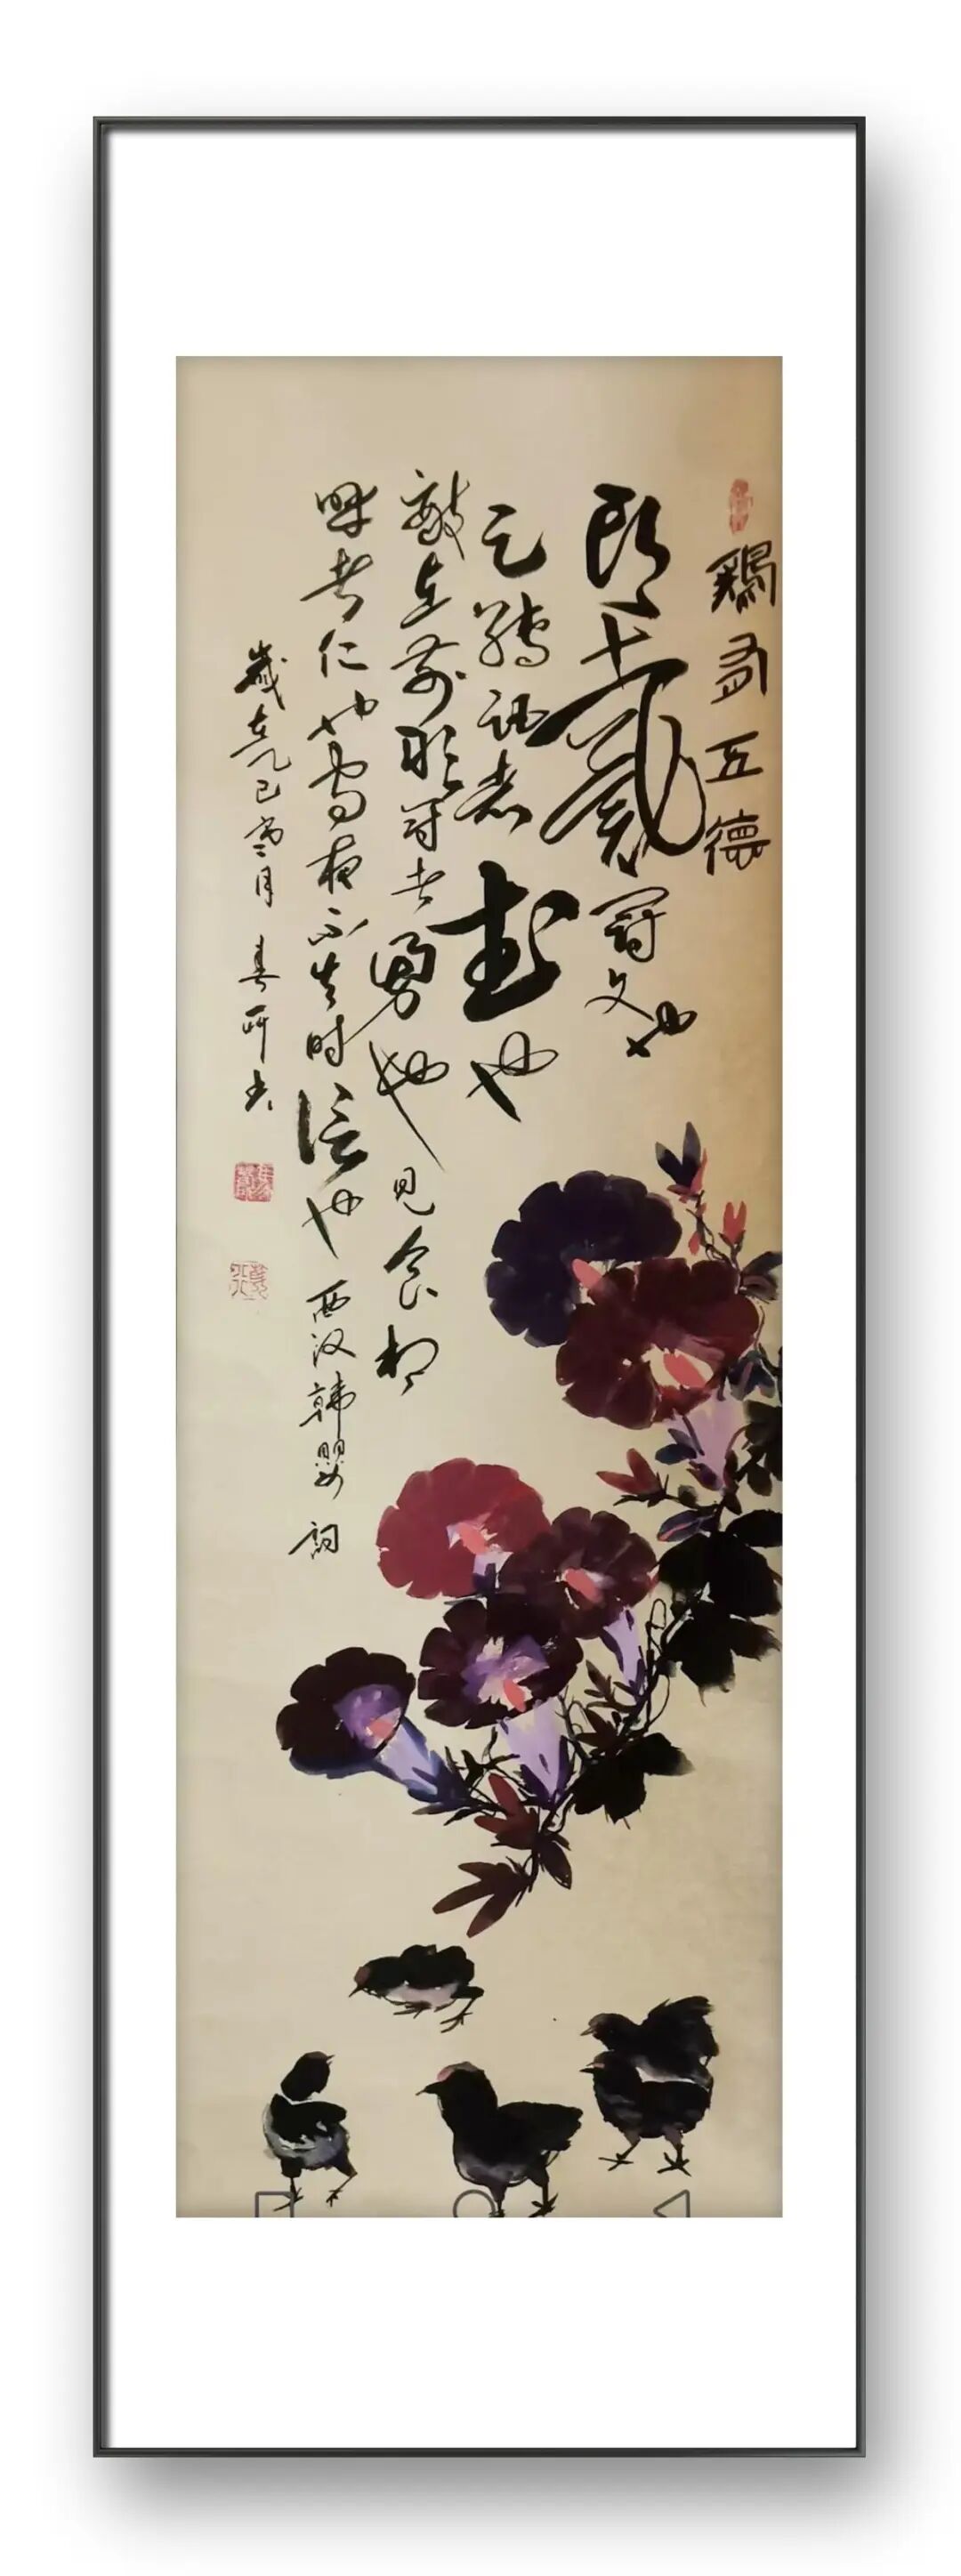 鷄有五德
頭戴冠文也
足搏距者武也
敵在前敢鬥者勇也見食相
呼者仁也守夜不失时信也西汉韩婴詞
歲在己月春所书